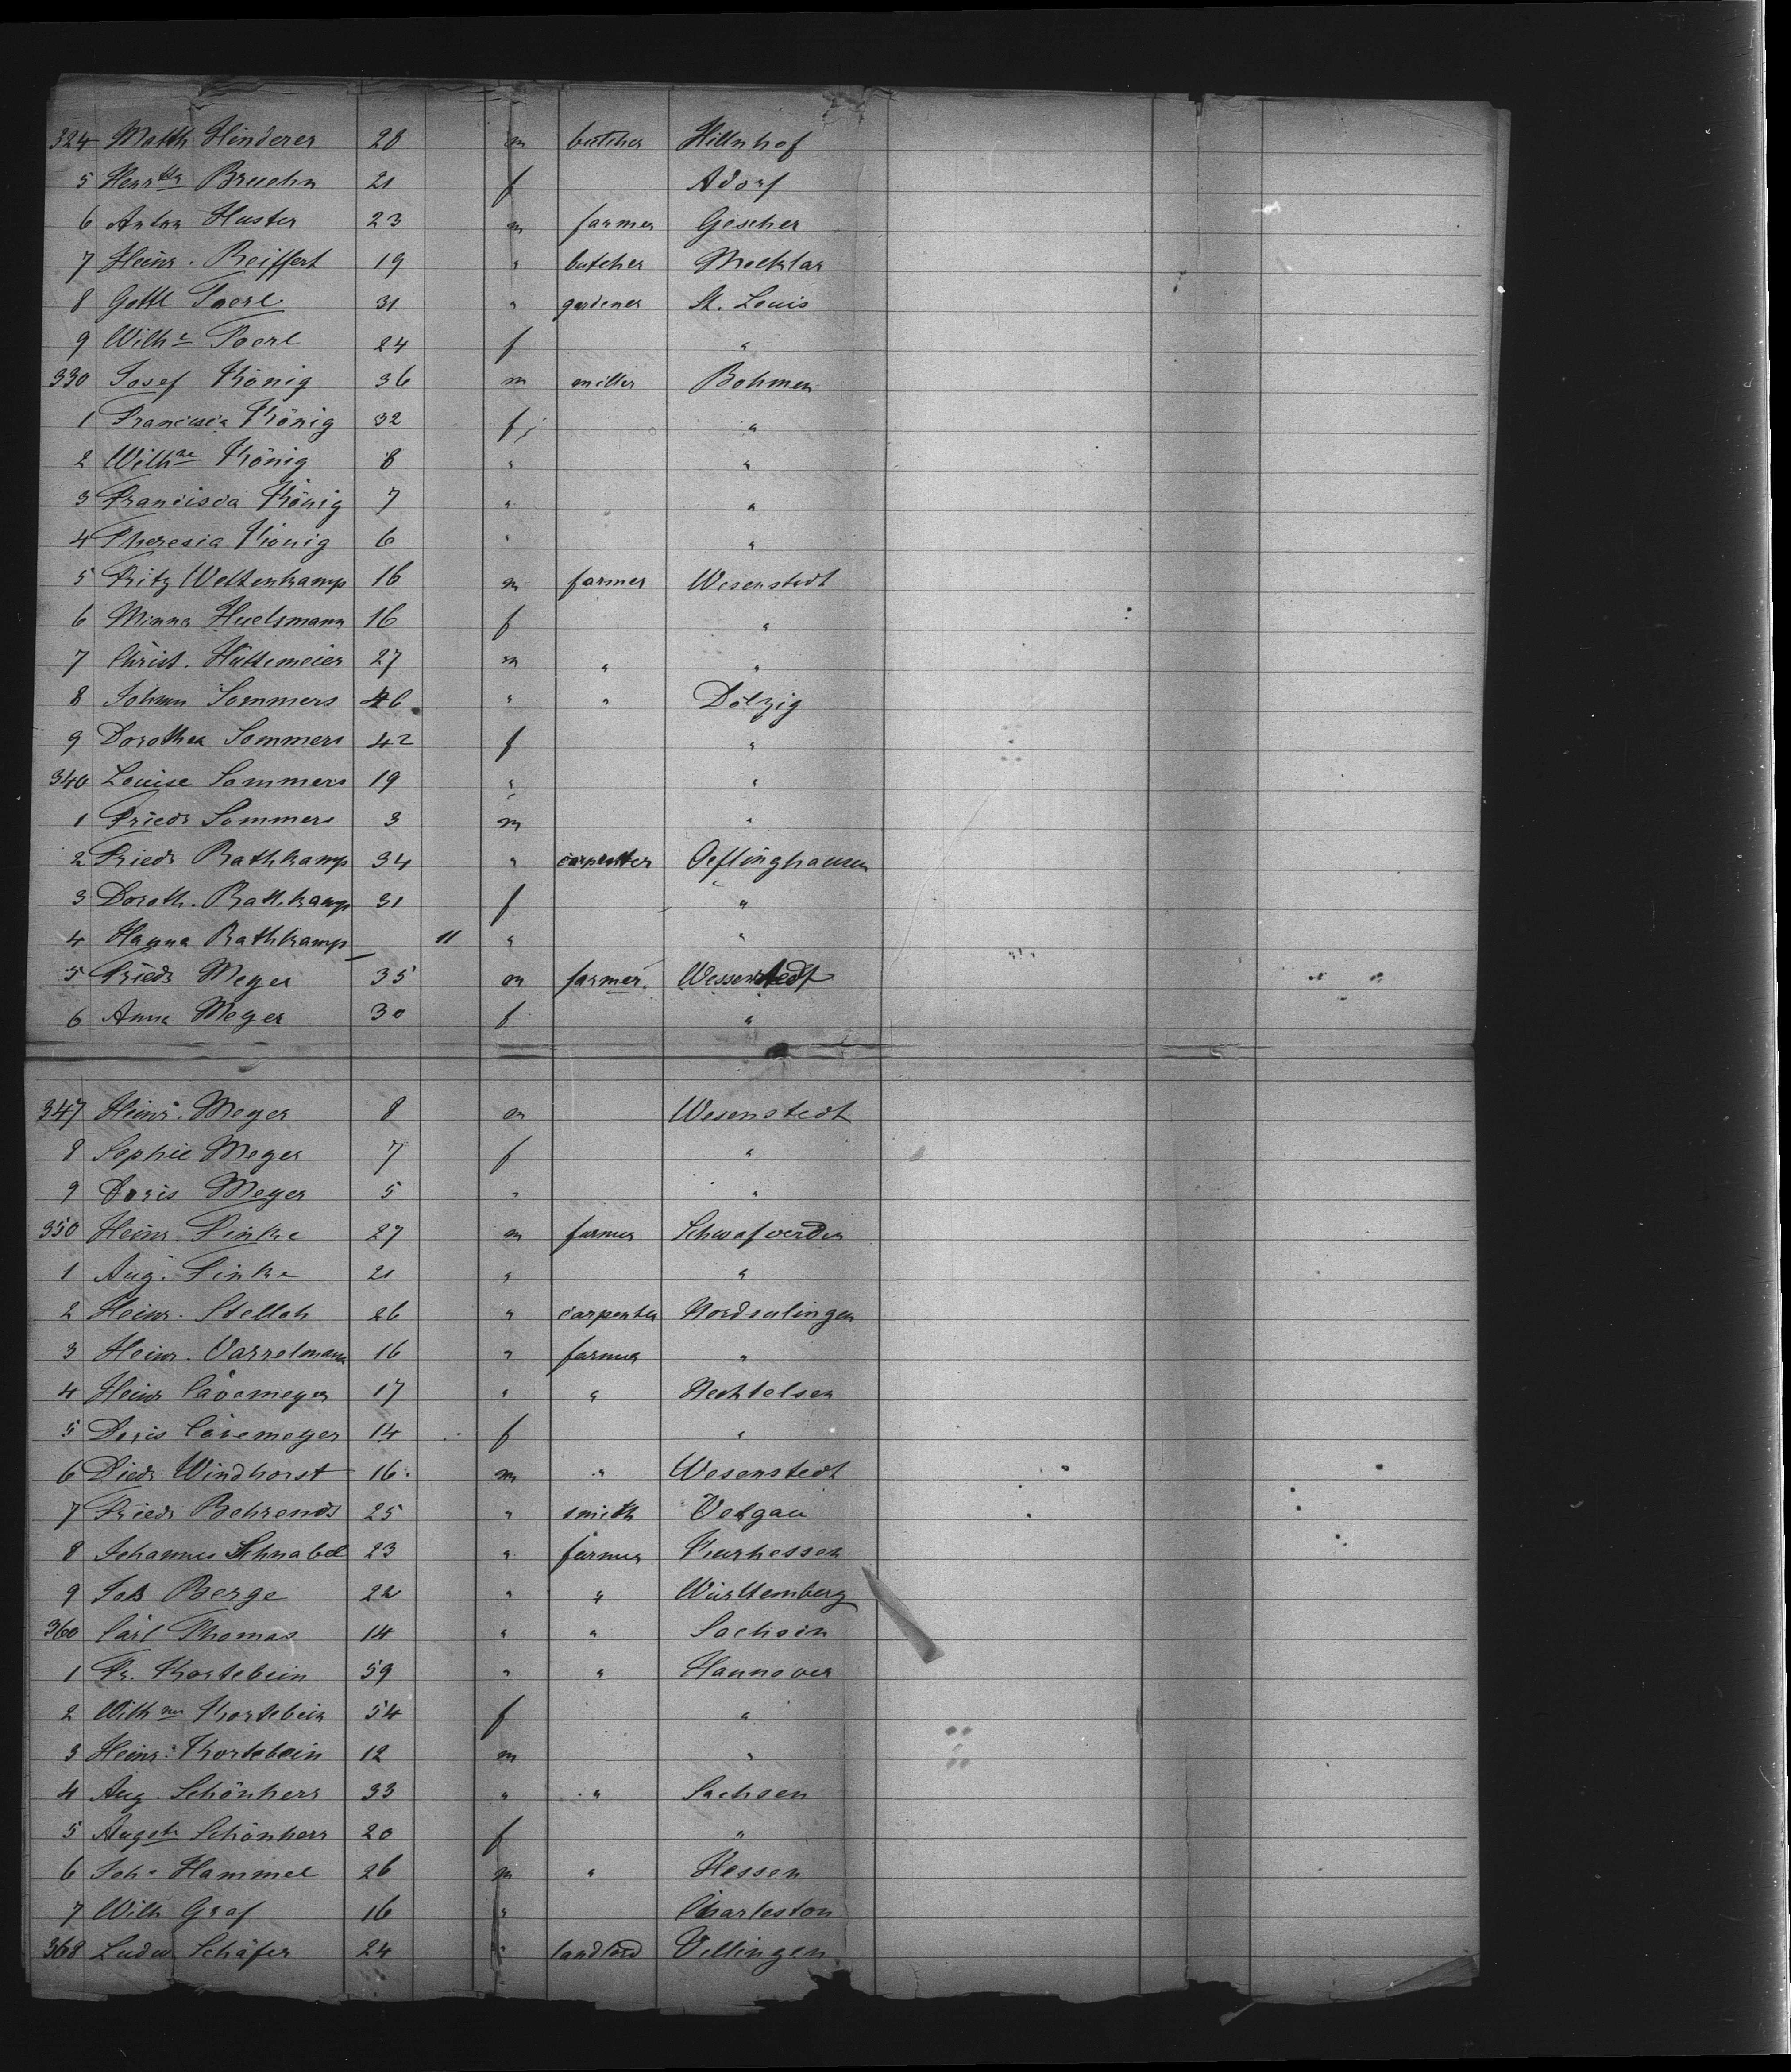 324 Matth Hinderer 28 m butcher Hillnhof
5 Henrtte Bruehn 21 f Adorf
6 Anton Huster 23 m farmer Gescher
7 Heinr. Reiffert 19 " butcher Mecklar
8 Gottl Poerl 31 " gardener St. Louis
9 Wilhe Poerl 24 f "
330 Josef König 36 m miller Bohmen
1 Francisca König 32 f "
2 Wilhne König 8 " "
3 Francisca König 7 " "
4 Theresia König 6 " "
5 Fritz Weltenkamp 16 m farmer Wesenstedt
6 Minna Huelsmann 16 f "
7 Christ. Hüttemeier 27 m " "
8 Johann Sommers 46 " " Dölzig
9 Dorothea Sommers 42 f "
340 Louise Sommers 19 " "
1 Friedr Sommers 3 m "
2 Friedr Rathkamp 34 " carpenter Oeftinghausen
3 Doroth. Rathkamp 31 f "
4 Hanna Rathkamp 11 " "
5 Friedr Meyer 35 m farmer Wessenstedt
6 Anna Meyer 30 f "
347 Heinr. Meyer 8 m Wesenstedt
8 Sophie Meyer 7 f "
9 Doris Meyer 5 " "
350 Heinr. Finke 27 m farmer Schwaforden
1 Aug. Finke 21 " "
2 Heinr. Stelloh 26 " carpenter Nordsulingen
3 Heinr. Varrelmann 16 " farmer "
4 Heinr Cavemeyer 17 " " Nechtelsen
5 Doris Cavemeyer 14 f "
6 Diedr Windhorst 16 m " Wesenstedt
7 Friedr Behrends 25 " smith Velgau
8 Johannes Schnabel 23 " farmer Kurhessen
9 Jos Berge 22 " " Württemberg
360 Carl Thomas 14 " " Sachsen
1 Fr. Kortebein 59 " " Hannover
2 Wilhne Kortebein 54 f "
3 Heinr. Kortebein 12 m "
4 Aug. Schönherr 33 " " Sachsen
5 Augste Schönherr 20 f "
6 Joh. Hammel 26 m " Hessen
7 Wilh Graf 16 " Charleston
368 Ludw Schäfer 24 " landlord Villingen